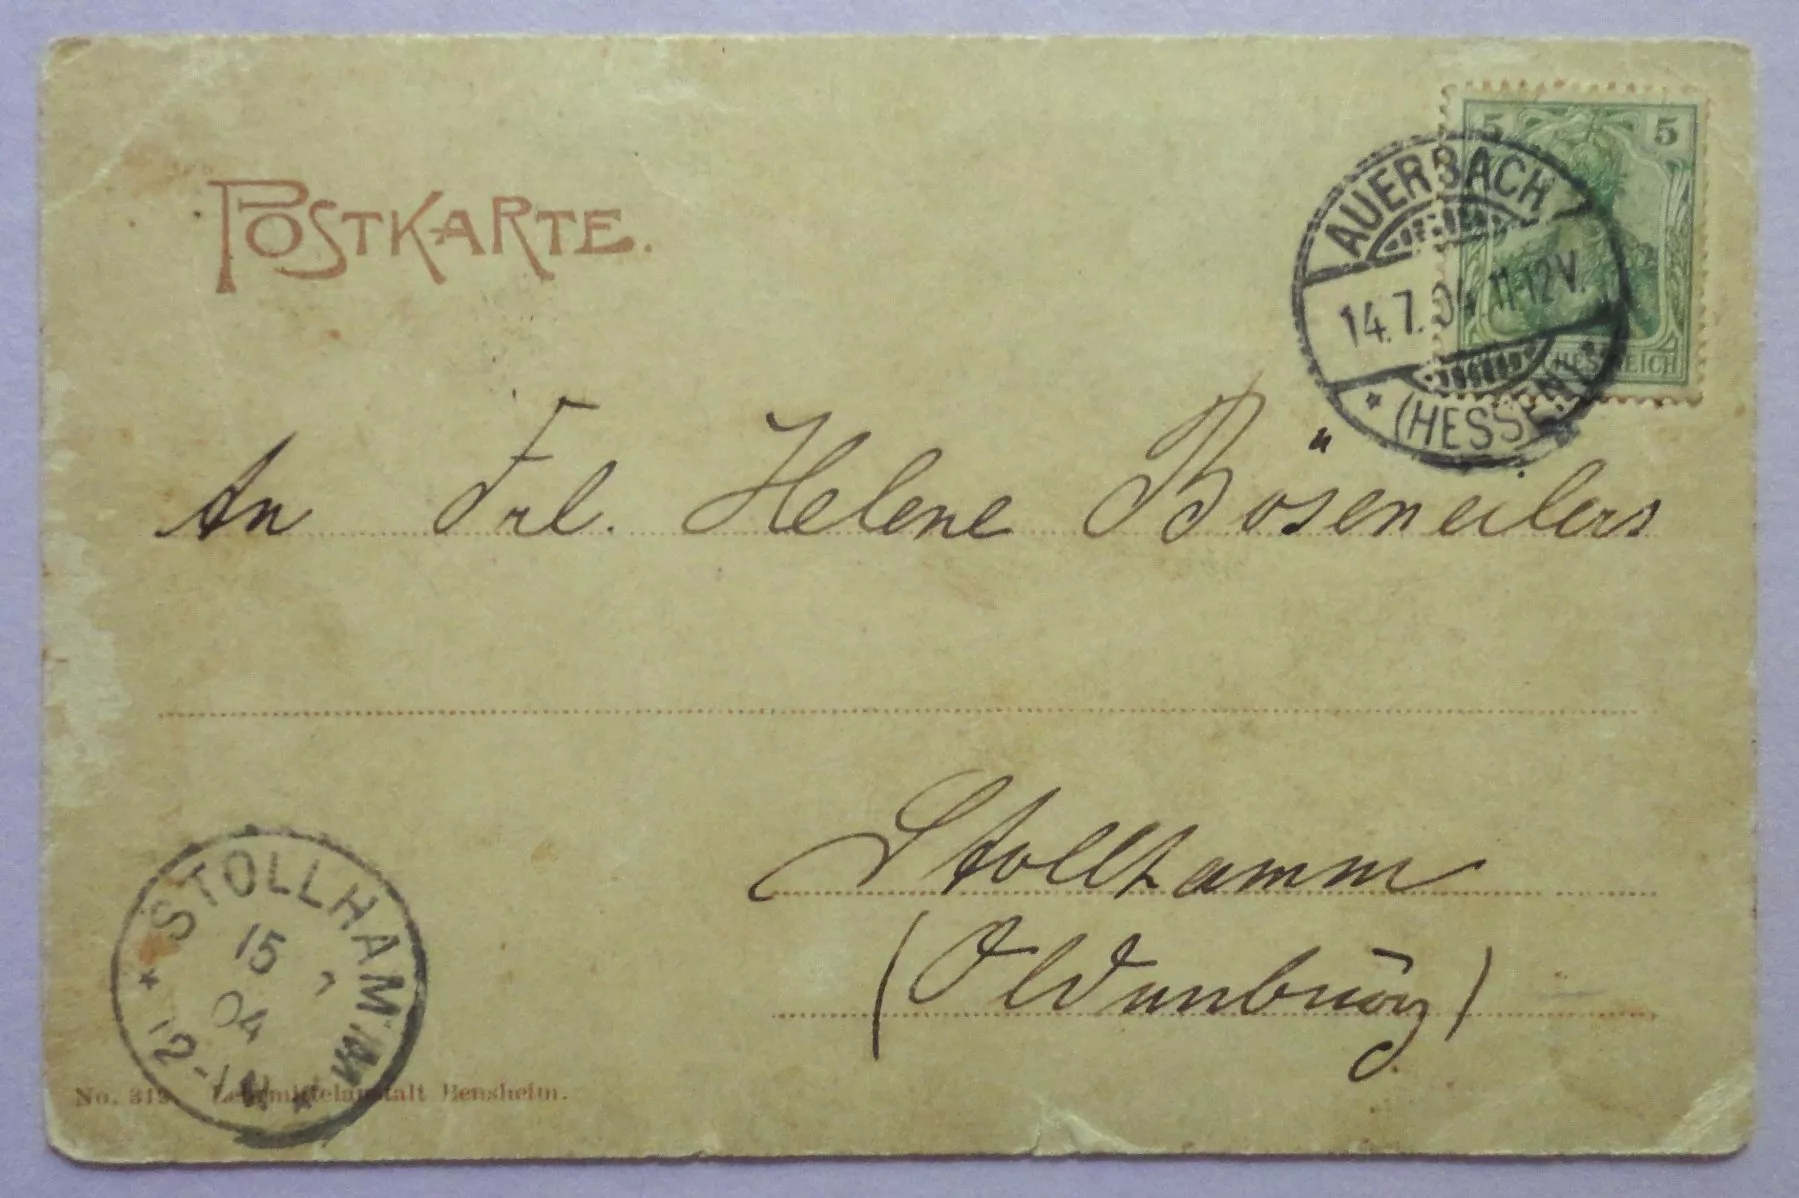 POSTKARTE.
5 5
AUERBACH
14.7.04 11-12V.
* (HESSEN) *
REICH
An Frl. Helene Böseneilers
Stollhamm
(Oldenburg)
* STOLLHAMM *
15 7
04
12-1N
No. 312 Lehrmittelanstalt Bensheim.